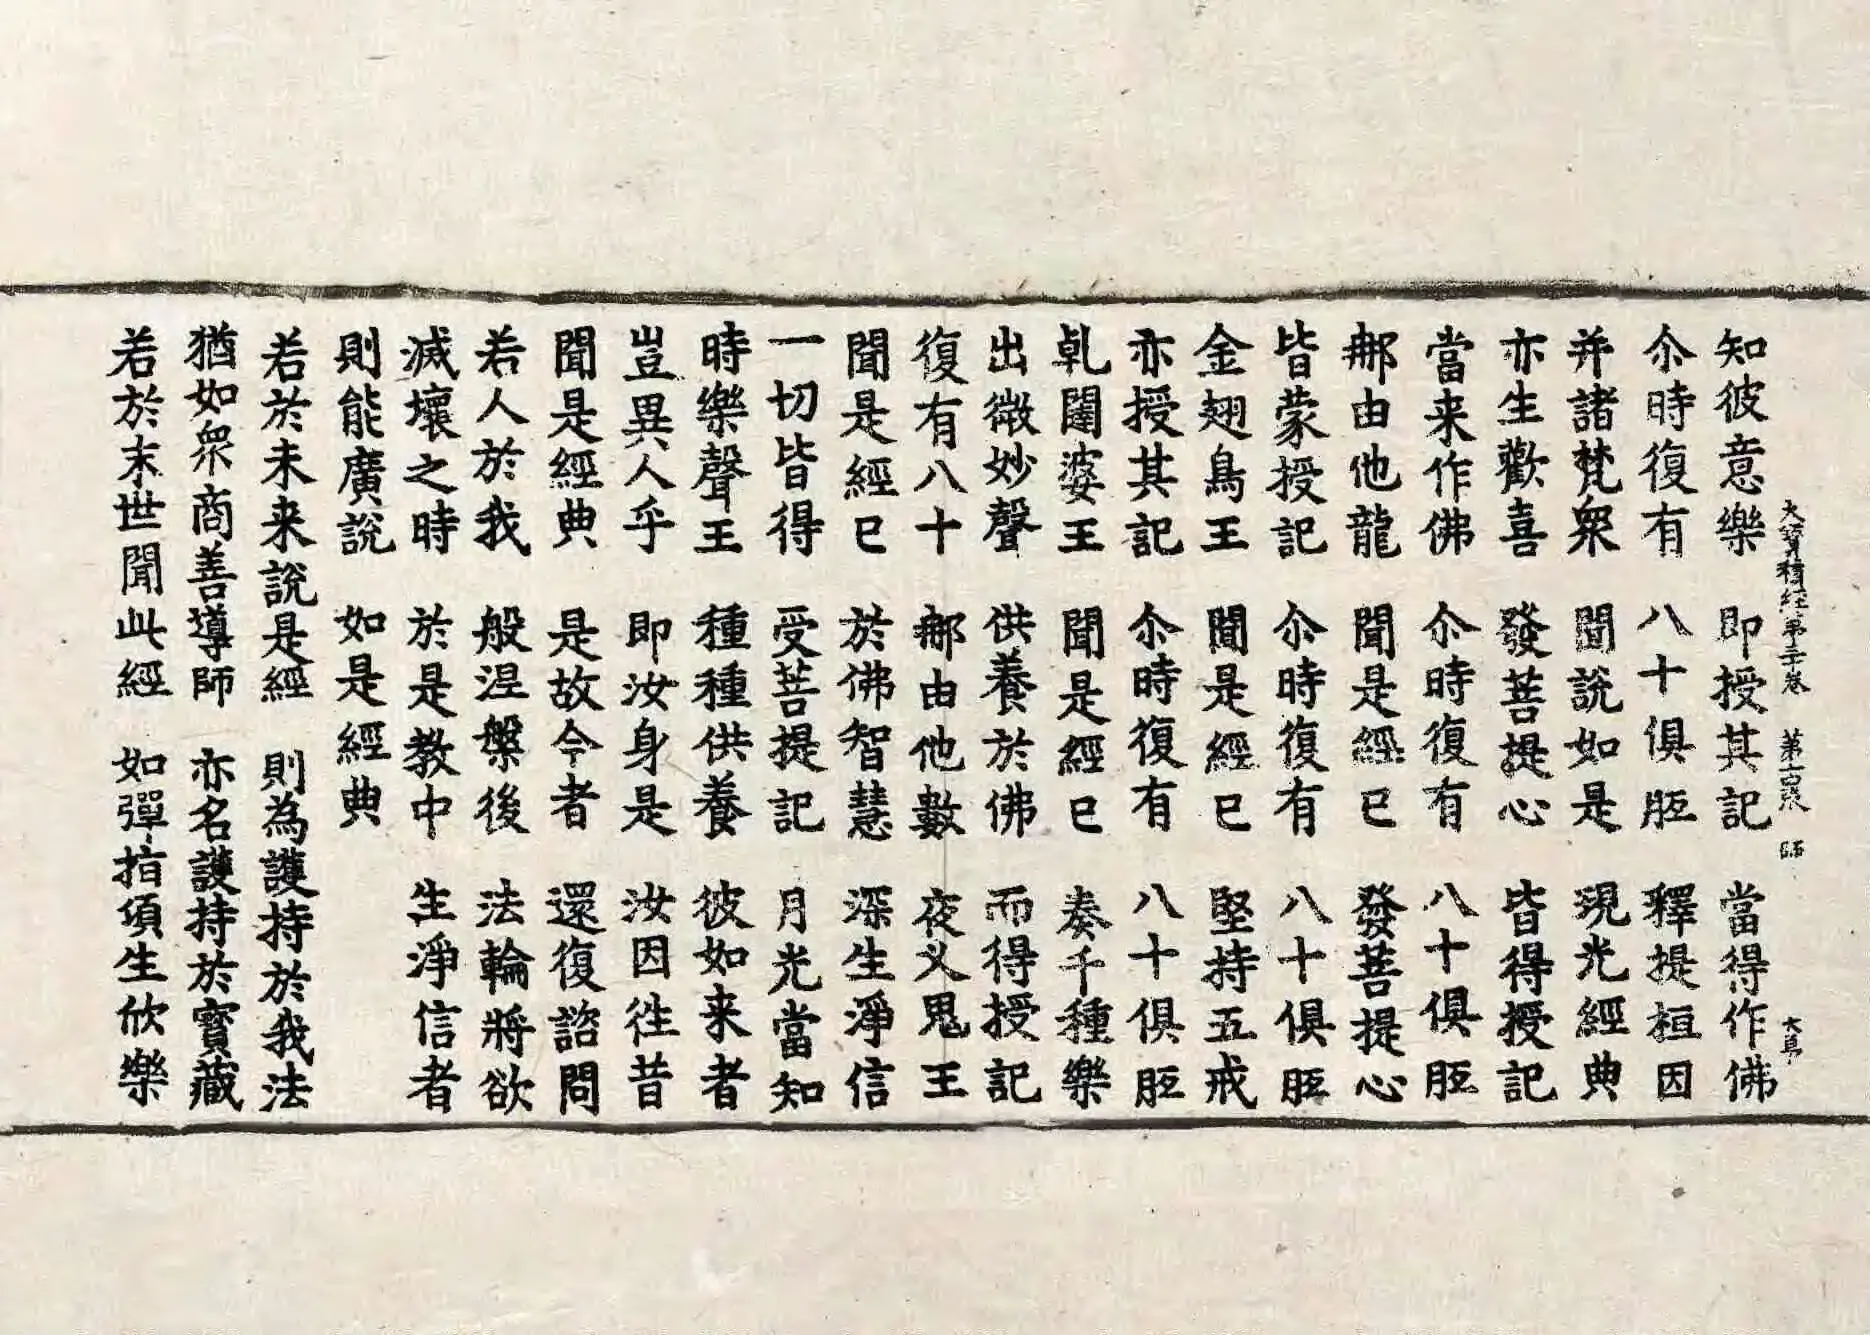 大寶積經第三十卷 第十六張 師
大阜
知彼意樂 即授其記 當得作佛
尒時復有 八十俱胝 釋提桓因
并諸梵衆 聞說如是 現光經典
亦生歡喜 發菩提心 皆得授記
當来作佛 尒時復有 八十俱胝
那由他龍 聞是經已 發菩提心
皆蒙授記 尒時復有 八十俱胝
金翅鳥王 聞是經已 堅持五戒
亦授其記 尒時復有 八十俱胝
乹闥婆王 聞是經已 奏千種樂
出微妙聲 供養於佛 而得授記
復有八十 那由他數 夜义鬼王
聞是經已 於佛智慧 深生淨信
一切皆得 受菩提記 月光當知
時樂聲王 種種供養 彼如来者
豈異人乎 即汝身是 汝因往昔
聞是經典 是故今者 還復諮問
若人於我 般涅槃後 法輪將欲
滅壞之時 於是教中 生淨信者
則能廣說 如是經典
若於未来說是經 則為護持於我法
猶如衆商善導師 亦名護持於寶藏
若於末世聞此經 如彈指須生欣樂